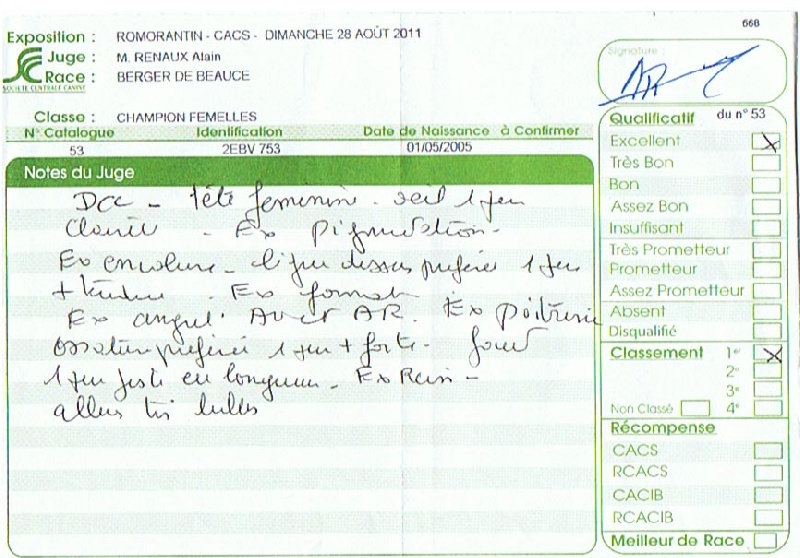 668
Exposition : ROMORANTIN - CACS - DIMANCHE 28 AOÛT 2011
Juge : M. RENAUX Alain
Race : BERGER DE BEAUCE
SOCIETE CENTRALE CANINE
Classe : CHAMPION FEMELLES
N° Catalogue Identification Date de Naissance à Confirmer
53 2EBV 753 01/05/2005
Notes du Juge
DCC - tête feminine - oeil 1 peu
clair - Ex pigmentation -
Ex encolure - ligne dessus préférée 1 peu
+ tendue Ex format.
Ex angul. AV et AR. Ex poitrine
ossature préférée 1 peu + forte - fouet
1 peu juste en longueur - Ex Rein -
allures très
Signature :
Qualificatif du n° 53
Excellent X
Très Bon
Bon
Assez Bon
Insuffisant
Très Prometteur
Prometteur
Assez Prometteur
Absent
Disqualifié
Classement 1er X
2e
3e
Non Classé 4e
Récompense
CACS
RCACS
CACIB
RCACIB
Meilleur de Race